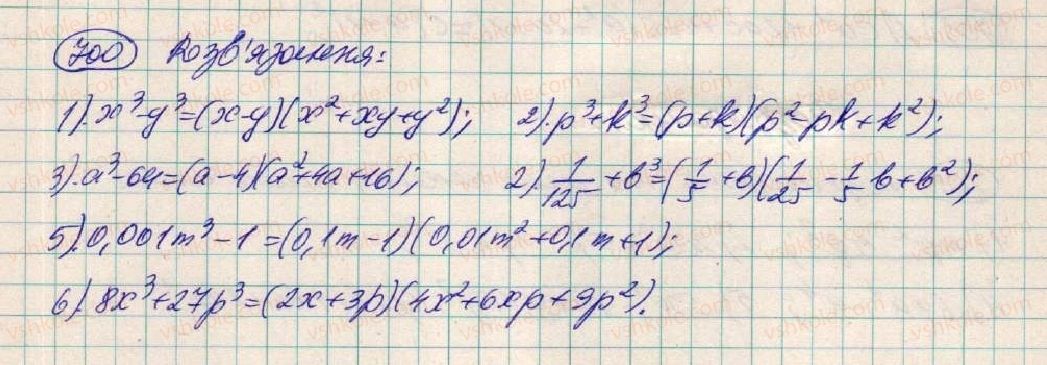 700 Розв'язання:
1). x³-y³=(x-y)(x²+xy+y²); 2). p³+k³=(p+k)(p²-pk+k²);
3). a³-64=(a-4)(a²+4a+16); 2). 1/125+b³=(1/5+b)(1/25-1/5b+b²);
5). 0,001m³-1=(0,1m-1)(0,01m²+0,1m+1);
6). 8x³+27p³=(2x+3p)(4x²+6xp+9p²).